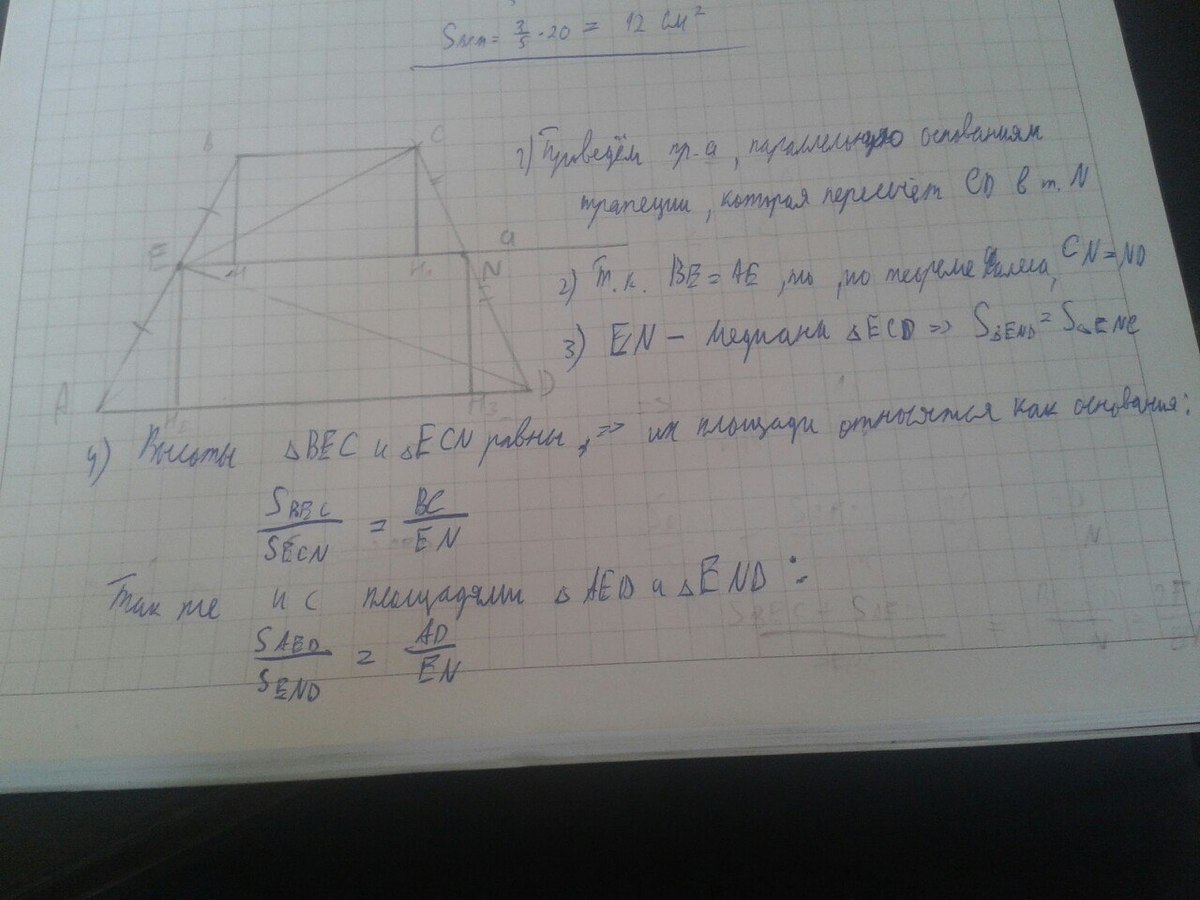 S = 3/5 · 20 = 12 см²
B
C
E
H
H₁
a
N
A
H₃
D
1) Проведём пр. a, параллельную основаниям
трапеции, которая пересечёт CD в т. N
2) Т.к. BE = AE, то, по теореме Фалеса, CN = ND
3) EN – медиана △ECD => S△END = S△ENC
4) Высоты △BEC и △ECN равны, => их площади относятся как основания:
SBEC/SECN = BC/EN
Так же и с площадями △AED и △END:
SAED/SEND = AD/EN